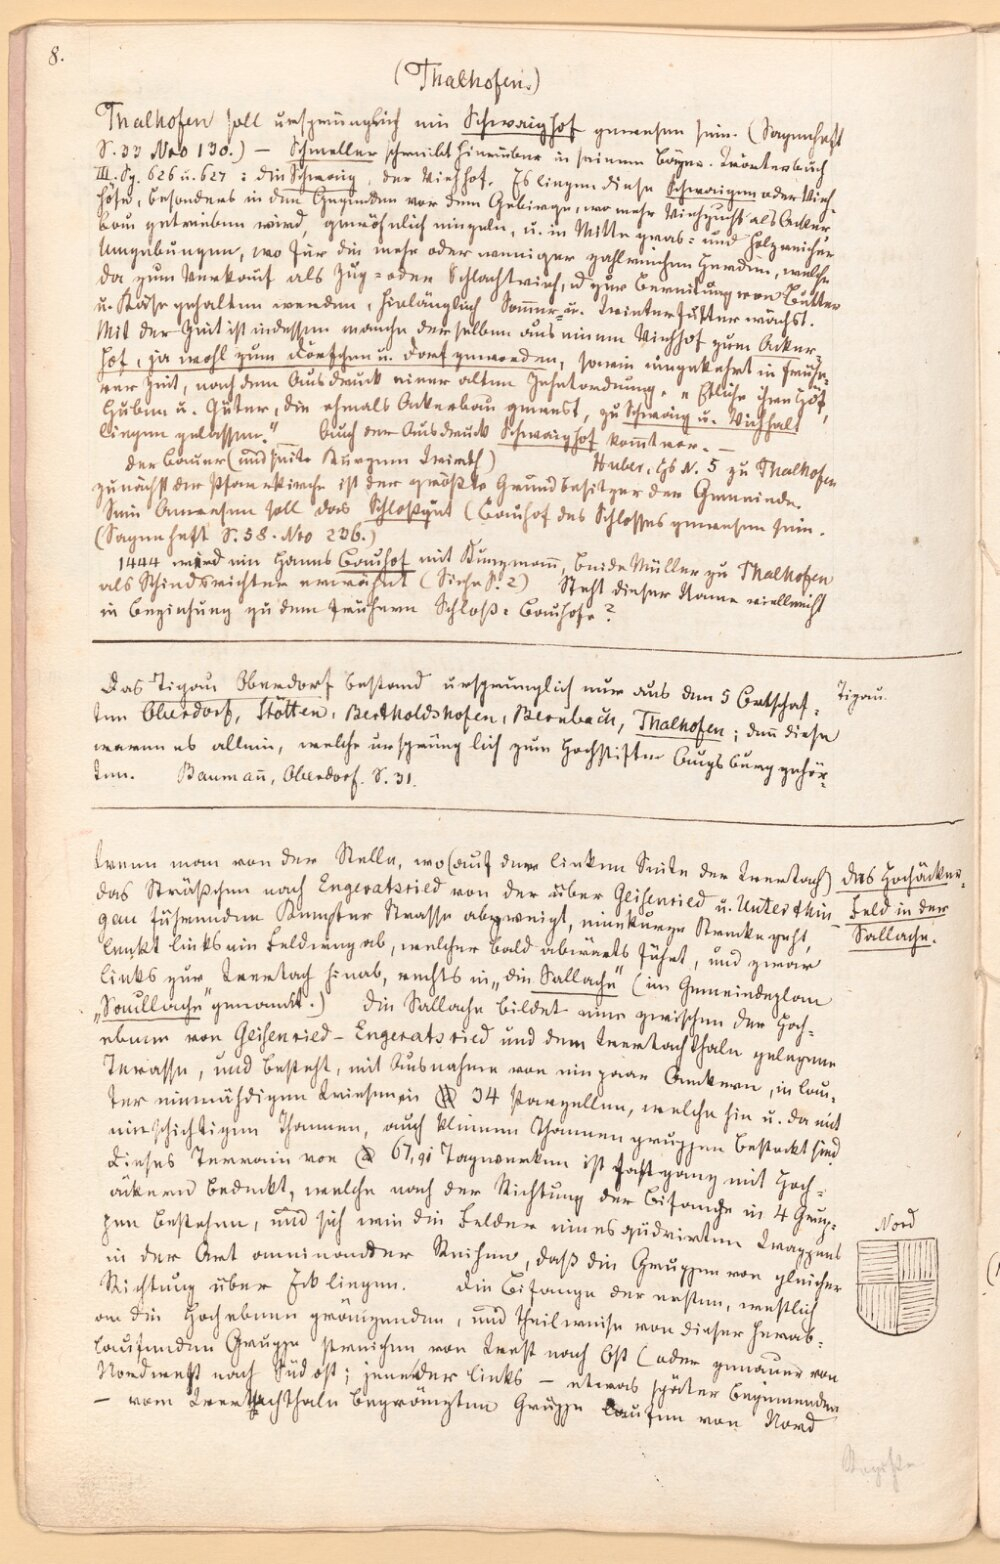 8.
(Thalhofen.)
Thalhofen soll ursprünglich ein Schwaighof gewesen sein. (Sagenheft
S. 33 Nro 130.) — Schmeller schreibt hierüber in seinem bayer. Wörterbuch
III. Sg. 626 u. 627: die Schwaig, der Viehhof. Es liegen diese Schwaigen oder Vieh-
höfe, besonders in den Gegenden vor dem Gebirge, wo mehr Viehzucht als Acker-
bau getrieben wird, gewöhnlich einzeln, u. in Mitte gras- und holzreicher
Umgebungen, wo für die mehr oder weniger zahlreichen Herden, welche
da zum Verkauf als Zug- oder Schlachtvieh, od zur Bereitung von Butter
u. Käse gehalten werden, hinlänglich Sommer- u. Winterfutter wächst.
Mit der Zeit ist indessen manche derselben aus einem Viehhof zum Acker-
hof, ja wohl zum Dörfchen u. Dorf geworden, sowie umgekehrt in frühe-
rer Zeit, nach dem Ausdruck einer alten Zehetordnung, "Etliche ihre Höf,
Huben u. Güter, die ehmals Ackerbau gewest, zu Schwaig u. Viehhalt
liegen gelassen." Auch der Ausdruck Schwaighof kommt vor. —
Der Bauer (und seite Kurzem Wirth) Huber, Hs N. 5 zu Thalhofen
zunächst der Pfarrkirche ist der größte Grundbesitzer der Gemeinde.
Sein Anwesen soll das Schloßgut (Bauhof des Schlosses gewesen sein.
(Sagenheft S. 58. Nro 236.)
1444 wird ein Hanns Bauhof mit Kunzmann, beide Müller zu Thalhofen
als Schiedsrichter erwähnt (Siehe S. 2) Steht dieser Name vielleicht
in Beziehung zu dem frühern Schloß-Bauhofe?
Das Tigau Oberdorf bestand ursprünglich nur aus den 5 Ortschaf-
Tigau.
ten Oberdorf, Stötten, Bertholdshofen, Bernbach, Thalhofen; denn diese
waren es allein, welche ursprünglich zum Hochstifte Augsburg gehör-
ten. Baumann, Oberdorf. S. 31.
Wenn man von der Stelle, wo (auf der linken Seite der Wertach)
Das Hochäcker-
das Sträßchen nach Engeratsried von der über Geisenried u. Unterthin-
Feld in der
gau führenden Kempter Strasse abzweigt, eine kurze Strecke geht,
Sallache.
lenkt links ein Feldweg ab, welcher bald abwärts führt, und zwar
links zur Wertach hinab, rechts in "die Sallache" (im Gemeindeplan
"Saullache" genannt.) Die Sallache bildet eine zwischen der Hoch-
ebene von Geisenried - Engeratsried und dem Wertachthale gelegene
Terasse, und besteht, mit Ausnahme von ein paar Aeckern, in lau-
ter einmähdigen Wiesen in 34 Parzellen, welche hin u. da mit
einschichtigen Thannen, auch kleinen Thannengruppen besteckt sind
Dieses Terrain von 67,91 Tagwerken ist fast ganz mit Hoch-
äckern bedeckt, welche nach der Richtung der Bifänge in 4 Grup-
pen bestehen, und sich wie die Felder eines quadrirten Wappens
Nord
in der Art aneinander reihen, daß die Gruppen von gleicher
Richtung über Eck liegen. Die Bifänge der ersten, westlich
an die Hochebene gränzenden, und theilweise von dieser herab-
laufenden Gruppe streichen von West nach Ost (oder genauer von
Nordwest nach Südost; jene der links — etwas später beginnenden
— vom Wertachthale begränzten Gruppe laufen von Nord